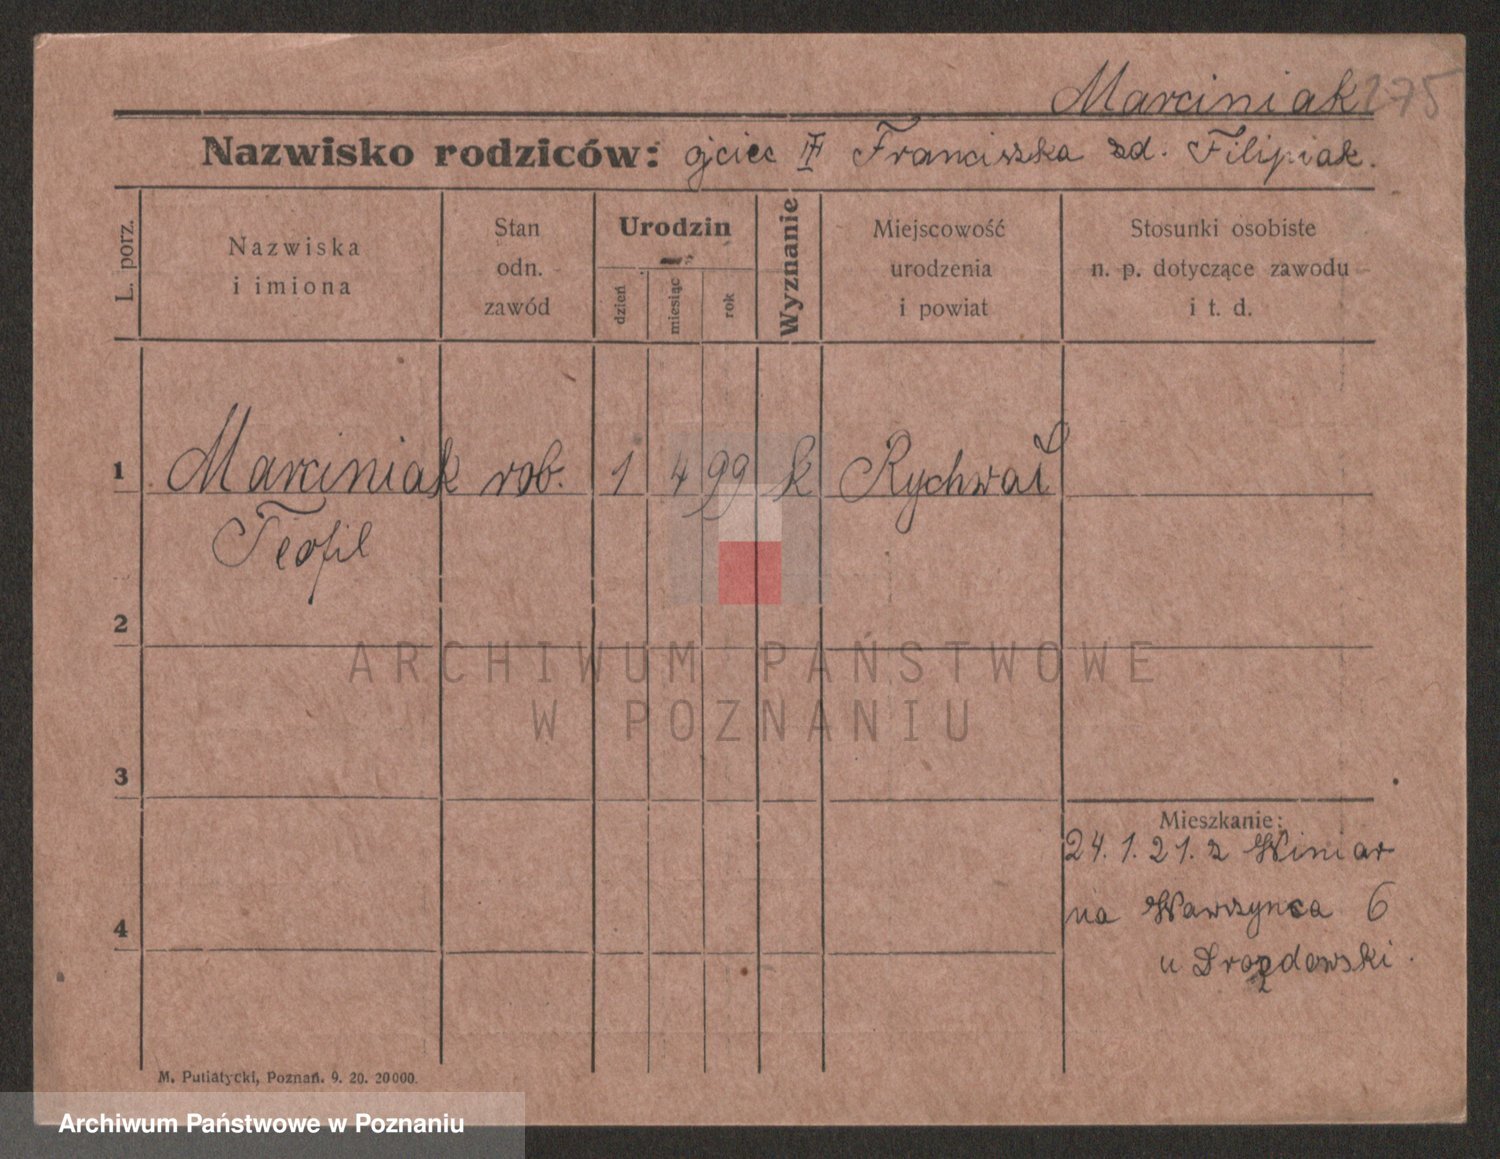 Marciniak 275
Nazwisko rodziców: ojciec Franciszka zd. Filipiak.
L. porz.
Nazwiska
i imiona
Stan
odn.
zawód
Urodzin
dzień
miesiąc
rok
Wyznanie
Miejscowość
urodzenia
i powiat
Stosunki osobiste
n. p. dotyczące zawodu
i t. d.
1 Marciniak rob. 1 4 99 k Rychwał
Teofil
2
ARCHIWUM PAŃSTWOWE
W POZNANIU
3
Mieszkanie:
24.1.21. z Winiar
na Wawrzynca 6
4
u Drozdowski.
M. Putiatycki, Poznań. 9. 20. 20000.
Archiwum Państwowe w Poznaniu